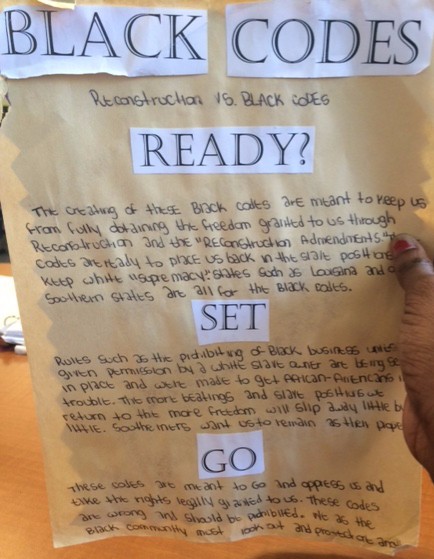 BLACK CODES
Reconstruction VS. BLACK CODES
READY?
The creating of these Black codes are meant to keep us
from fully obtaining the freedom granted to us through
Reconstruction and the "REconstruction Admendments."
codes are really to place us back in the slave positions
keep white "supremacy." States such as Lousina and
Southern states are all for the Black codes.
SET
Rules such as the prohibiting of Black business unless
given permission by a white slave owner are being
in place and were made to get African-Americans
trouble. The more beatings and slave positions we
return to the more freedom will slip away little by
little. Southerners want us to remain as their
GO
These codes are meant to Go and oppress us and
take the rights legally granted to us. These codes
are wrong and should be prohibited. We as the
Black community must look out and protect one